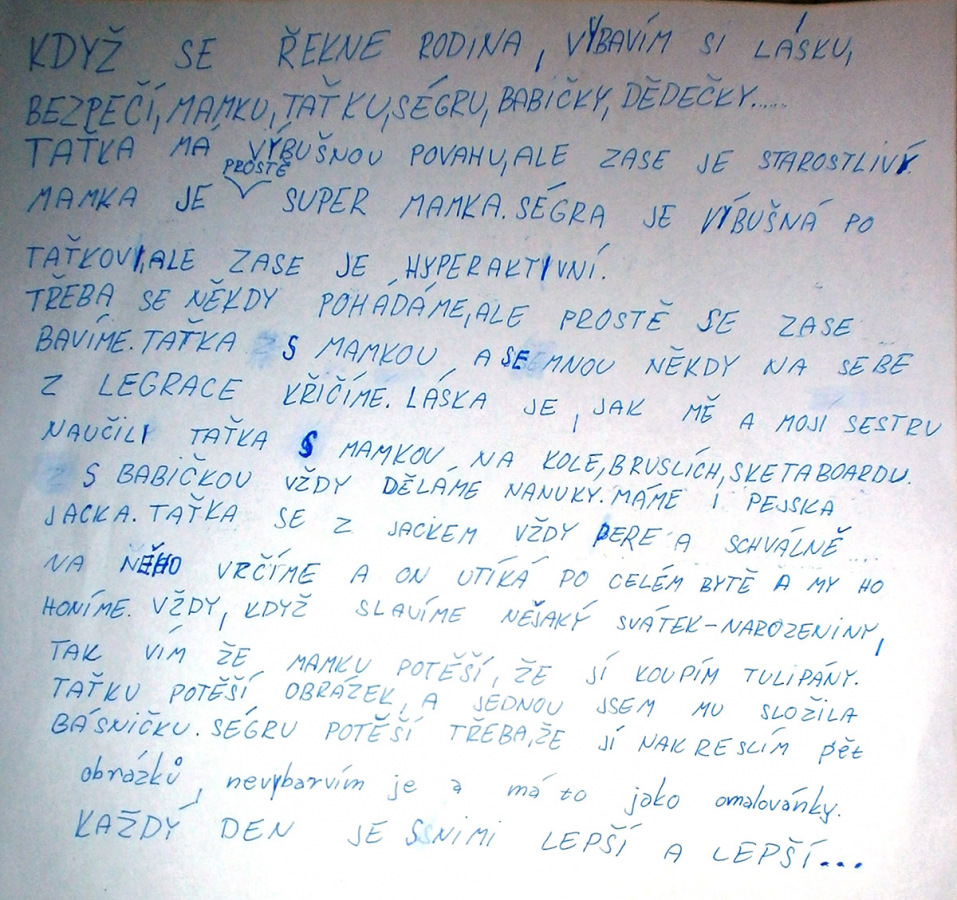 KDYŽ SE ŘEKNE RODINA, VYBAVÍM SI LÁSKU,
BEZPEČÍ, MAMKU, TAŤKU, SÉGRU, BABIČKY, DĚDEČKY.....
TAŤKA MÁ VÝBUŠNOU POVAHU, ALE ZASE JE STAROSTLIVÝ.
PROSTĚ
MAMKA JE SUPER MAMKA. SÉGRA JE VÝBUŠNÁ PO
TAŤKOVI, ALE ZASE JE HYPERAKTIVNÍ.
TŘEBA SE NĚKDY POHÁDÁME, ALE PROSTĚ SE ZASE
BAVÍME. TAŤKA S MAMKOU, A SE MNOU NĚKDY NA SEBE
Z LEGRACE KŘIČÍME. LÁSKA JE, JAK MĚ A MOJÍ SESTRU
NAUČILI TAŤKA S MAMKOU NA KOLE, BRUSLÍCH, SKETABOARDU.
S BABIČKOU VŽDY DĚLÁME NANUKY. MÁME I PEJSKA
JACKA. TAŤKA SE Z JACKEM VŽDY PERE A SCHVÁLNĚ
NA NĚHO VRČÍME A ON UTÍKÁ PO CELÉM BYTĚ A MY HO
HONÍME. VŽDY, KDYŽ SLAVÍME NĚJAKÝ SVÁTEK-NAROZENINY,
TAK VÍM ŽE MAMKU POTĚŠÍ, ŽE JÍ KOUPÍM TULIPÁNY.
TAŤKU POTĚŠÍ OBRÁZEK, A JEDNOU JSEM MU SLOŽILA
BÁSNIČKU. SÉGRU POTĚŠÍ TŘEBA, ŽE JÍ NAKRESLÍM pět
obrázků, nevybarvím je a má to jako omalovánky.
KAŽDÝ DEN JE S NIMI LEPŠÍ A LEPŠÍ...